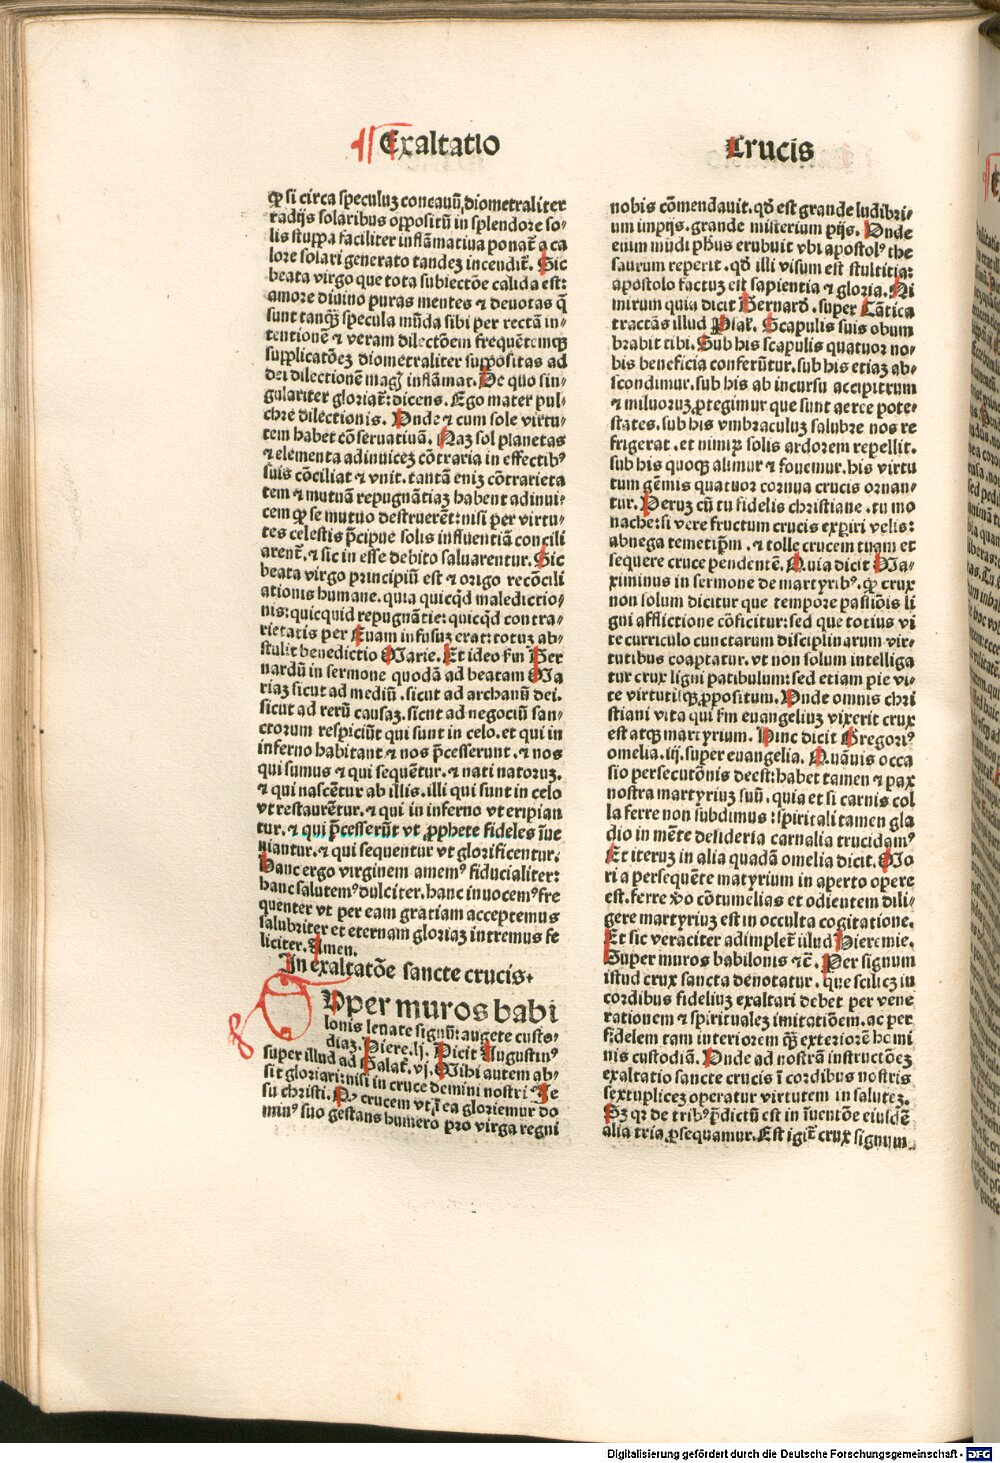 Exaltatio
Crucis
ꝙ si circa speculuꝫ concauū diometraliter
radijs solaribus oppositū in splendore so⸗
lis stuppa faciliter inflāmatiua ponat᷑ a ca
lore solari generato tandeꝫ incendit᷑. Sic
beata virgo que tota subiectōe calida est:
amore diuino puras mentes ⁊ deuotas q̄
sunt tanqꝫ specula mūda sibi per rectā in⸗
tentionē ⁊ veram dilectōem frequētemqꝫ
supplicatōeꝫ diometraliter suppositas ad
dei dilectionē magꝭ inflāmat. De quo sin⸗
gulariter gloriat᷑: dicens. Ego mater pul⸗
chre dilectionis. Unde ⁊ cum sole virtu⸗
tem habet cōseruatiuā. Naꝫ sol planetas
⁊ elementa adinuiceꝫ cōtraria in effectibꝰ
suis cōciliat ⁊ vnit. tantā eniꝫ cōtrarieta
tem ⁊ mutuā repugnātiaꝫ habent adinui⸗
cem ꝙ se mutuo destruerēt: nisi per virtu⸗
tes celestis p̄cipue solis influentiā concili
arent᷑. ⁊ sic in esse debito saluarentur. Sic
beata virgo principiū est ⁊ origo recōcili
ationis humane. quia quicqͥd maledictio⸗
nis: quicquid repugnātie: quicqͥd contra⸗
rietatis per Euam infusuꝫ erat: totuꝫ ab⸗
stulit benedictio Marie. Et ideo ẜm Ber
nardū in sermone quodā ad beatam Ma
riaꝫ sicut ad mediū. sicut ad archanū dei.
sicut ad rerū causaꝫ. sicut ad negociū san⸗
ctorum respiciūt qui sunt in celo. et qui in
inferno habitant ⁊ nos p̄cesserunt. ⁊ nos
qui sumus ⁊ qui sequētur. ⁊ nati natoruꝫ.
⁊ qui nascētur ab illis. illi qui sunt in celo
vt restaurētur. ⁊ qui in inferno vt eripian
tur. ⁊ qui p̄cesserūt vt ꝓphete fideles īue
niantur. ⁊ qui sequentur vt glorificentur.
Hanc ergo virginem amemꝰ fiducialiter:
hanc salutemꝰ dulciter. hanc inuocemꝰ fre
quenter vt per eam gratiam acceptemus
salubriter et eternam gloriaꝫ intremus fe
liciter. Amen.
In exaltatōe sancte crucis.
Uper muros babi
lonis leuate signū: augete custo⸗
diaꝫ. Hiere. lj. Dicit Augustinꝰ
super illud ad Galat᷑. vj. Mihi autem ab⸗
sit gloriari: nisi in cruce domini nostri Je
su christi. crucem vt ī ea gloriemur do
minꝰ suo gestans humero pro virga regni
nobis cōmendauit. qd̄ est grande ludibri⸗
um impijs. grande misterium pijs. Unde
enim mūdi ph̄us erubuit vbi apostolꝰ the
saurum reperit. qd̄ illi visum est stultitia:
apostolo factuꝫ est sapientia ⁊ gloria. Ni
mirum quia dicit Bernard᷑. super Cātica
tractās illud Psal᷑. Scapulis suis obum
brabit tibi. Sub his scapulis quatuor no⸗
bis beneficia conferūtur. sub his etiaꝫ ab⸗
scondimur. sub his ab incursu accipitrum
⁊ miluoruꝫ ꝓtegimur que sunt aeree pote⸗
states. sub his vmbraculuꝫ salubre nos re
frigerat. et nimiꝝ solis ardorem repellit.
sub his quoqꝫ alimur ⁊ fouemur. his virtu
tum gēmis quatuor cornua crucis ornan⸗
tur. Veruꝫ cū tu fidelis christiane. tu mo
nache: si vere fructum crucis expiri velis:
abnega temetip̄m. ⁊ tolle crucem tuam et
sequere cruce pendentē. Quia dicit Ma⸗
ximinus in sermone de martyribꝰ. ꝙ crux
non solum dicitur que tempore passiōis li
gni afflictione cōficitur: sed que totius vi
te curriculo cunctarum disciplinarum vir⸗
tutibus coaptatur. vt non solum intelliga
tur crux ligni patibulum: sed etiam pie vi⸗
te virtutisqꝫ ꝓpositum. Unde omnis chri
stiani vita qui ẜm euangeliuꝫ vixerit crux
est atqꝫ martyrium. Hinc dicit Gregoriꝰ
omelia. iij. super euangelia. Quāuis occa
sio persecutōnis deest: habet tamen ⁊ pax
nostra martyriuꝫ suū. quia et si carnis col
la ferre non subdimus: spiritali tamen gla
dio in mēte desideria carnalia trucidamꝰ
Et iteruꝫ in alia quadā omelia dicit. Mo
ri a persequēte matyrium in aperto opere
est. ferre v̓o cōtumelias et odientem dili⸗
gere martyriuꝫ est in occulta cogitatione.
Et sic veraciter adimplet᷑ illud Hieremie.
Super muros babilonis ⁊c̄. Per signum
istud crux sancta denotatur. que scilicꝫ in
cordibus fideliuꝫ exaltari debet per vene
rationem ⁊ spiritualeꝫ imitatiōem. ac per
fidelem tam interiorem qꝫ̄ exteriorē homi
nis custodiā. Unde ad nostrā instructōeꝫ
exaltatio sancte crucis ī cordibus nostris
sextupliceꝫ operatur virtutem in saluteꝫ.
Sꝫ qꝛ de tribꝰ p̄dictū est in īuentōe eiusdē
alia tria ꝓsequamur. Est igit᷑ crux signum
Digitalisierung gefördert durch die Deutsche Forschungsgemeinschaft - DFG